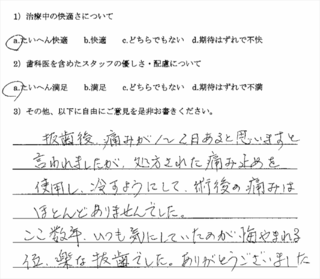 1）治療中の快適さについて
a.たいへん快適　b.快適　c.どちらでもない　d.期待はずれで不快
2）歯科医を含めたスタッフの優しさ・配慮について
a.たいへん満足　b.満足　c.どちらでもない　d.期待はずれで不満
3）その他、以下に自由にご意見を是非お書きください。
抜歯後、痛みが1〜2日あると思いますと
言われましたが、処方された痛み止めを
使用し、冷すようにして、術後の痛みは
ほとんどありませんでした。
ここ数年、いつも気にしていたのが悔やまれる
位、楽な抜歯でした。ありがとうございました